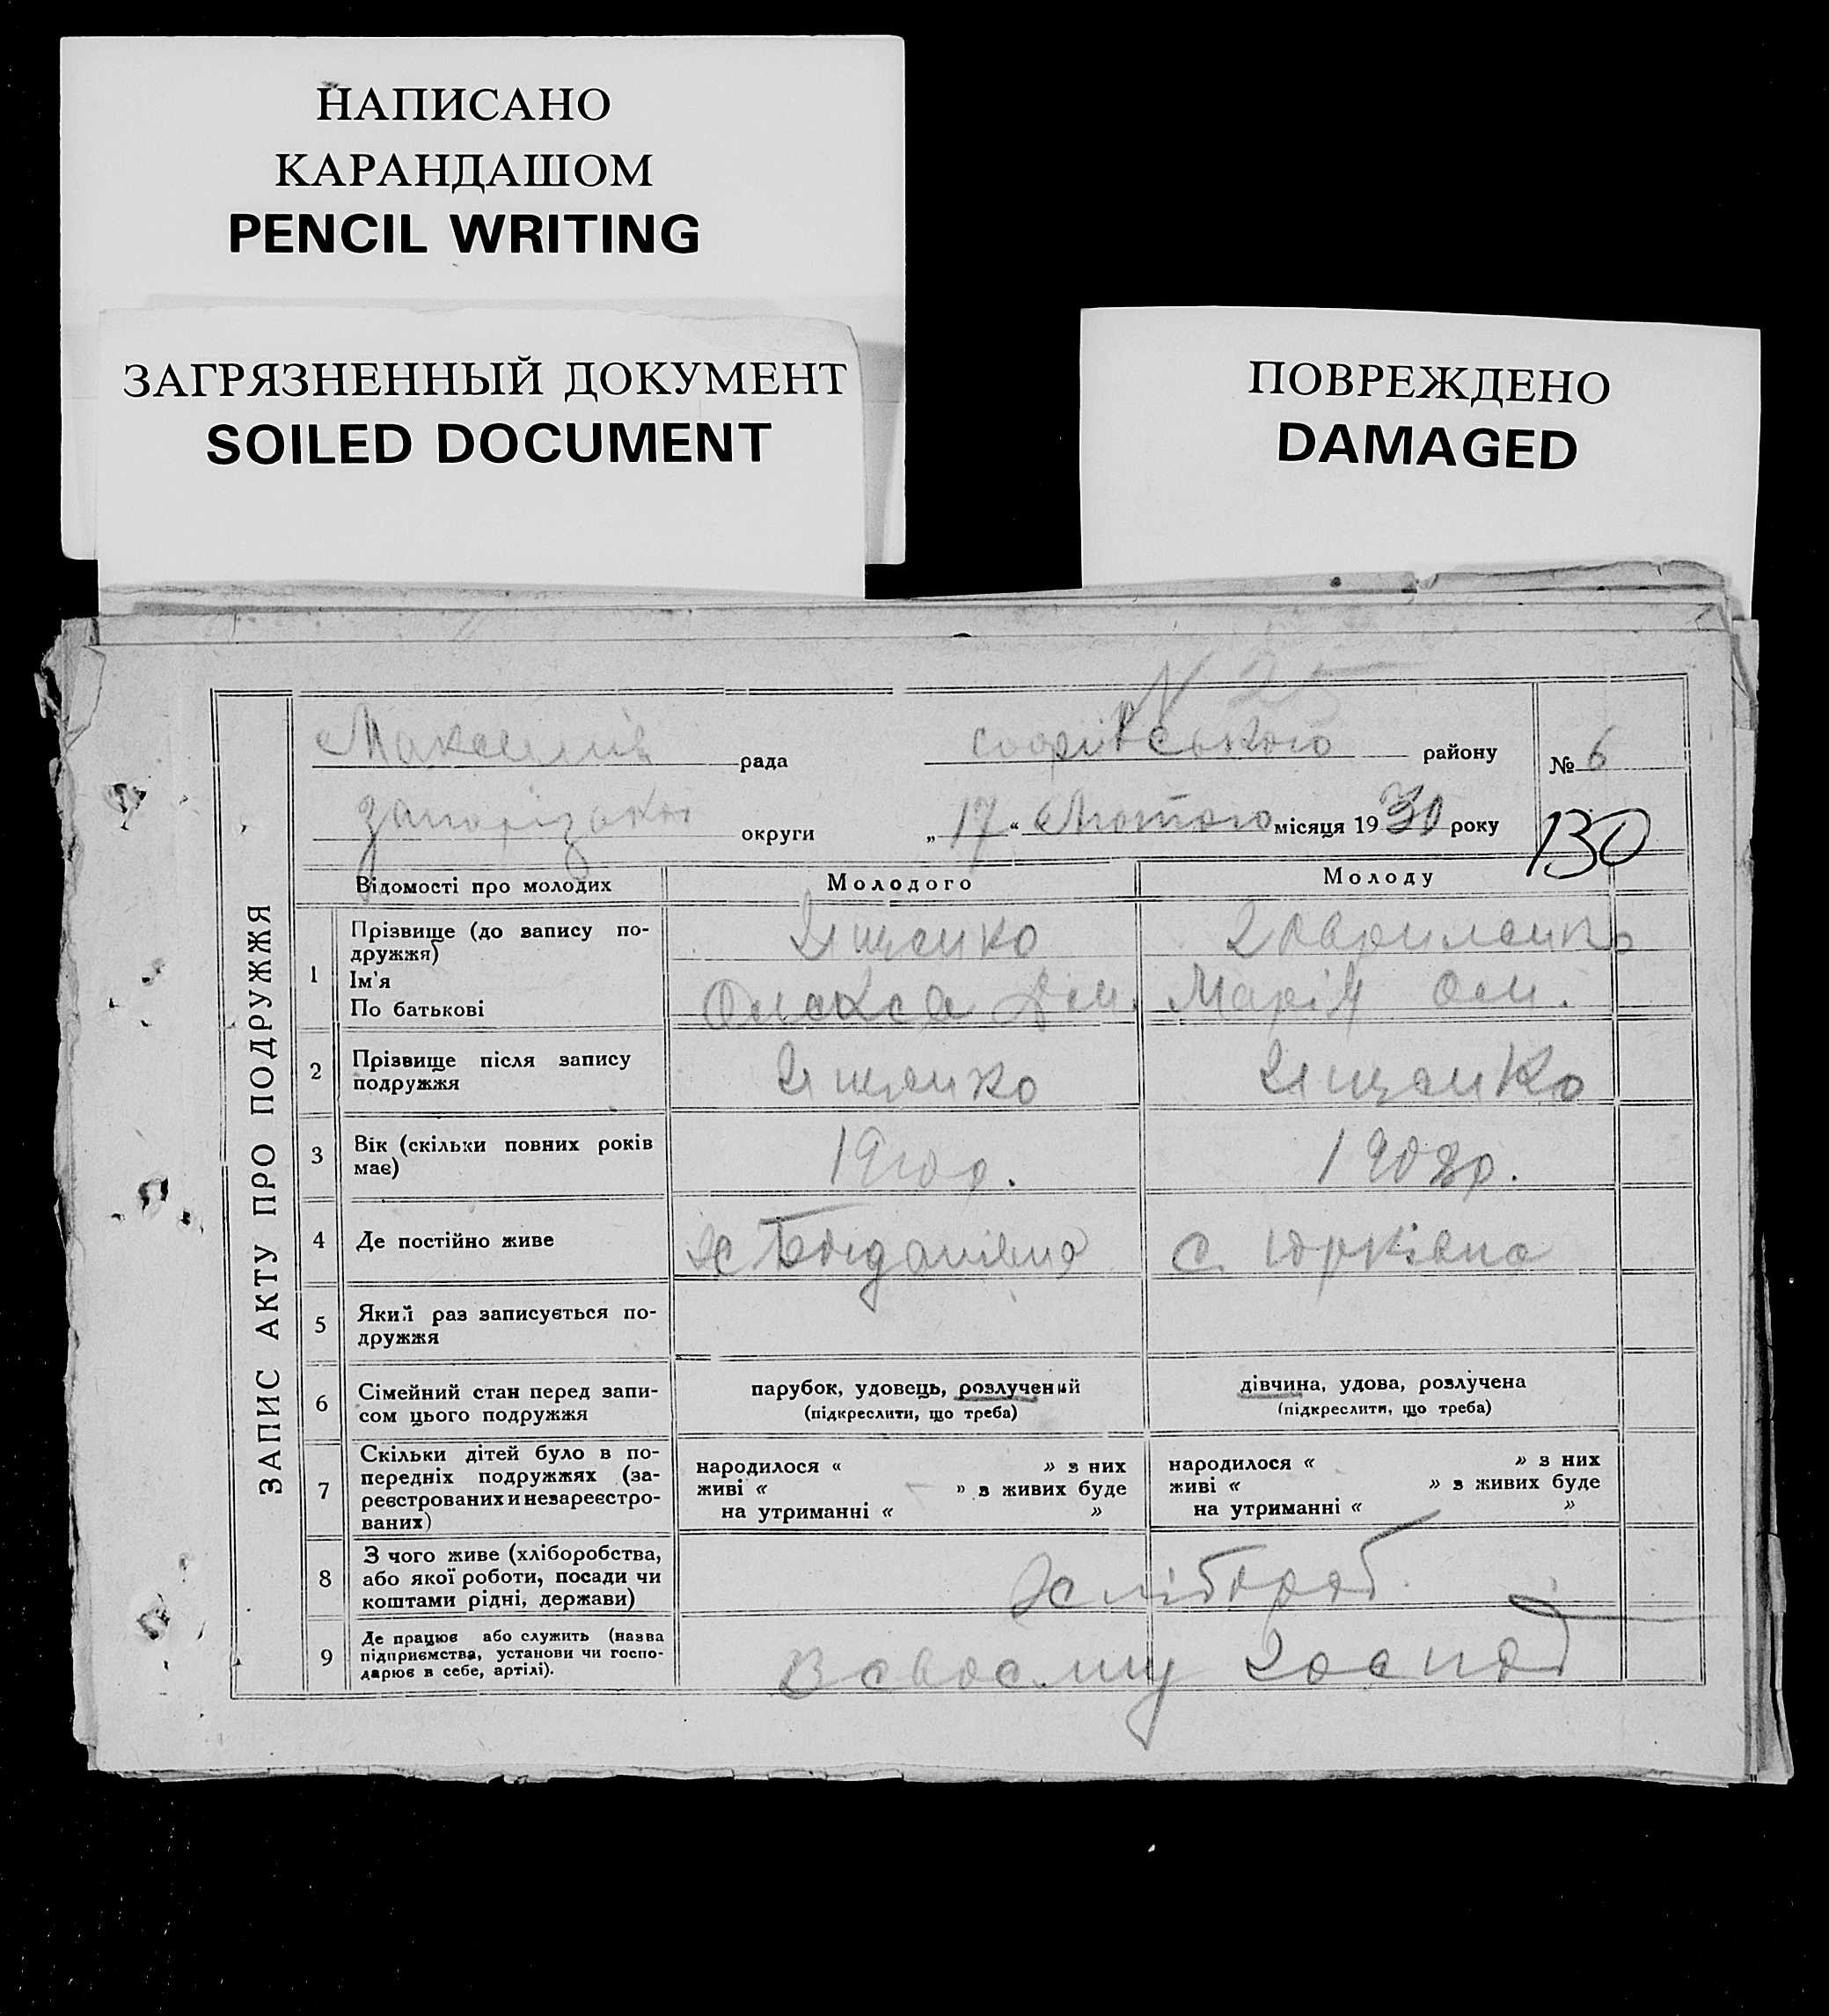 НАПИСАНО
КАРАНДАШОМ
PENCIL WRITING
ЗАГРЯЗНЕННЫЙ ДОКУМЕНТ
SOILED DOCUMENT
ПОВРЕЖДЕНО
DAMAGED
ЗАПИС АКТУ ПРО ПОДРУЖЖЯ
N 25
рада софіївського району № 6
округи „17“ Лютого місяця 1930 року
130
Відомості про молодих Молодого Молоду
1 Прізвище (до запису по-
дружжя)
Ім'я
По батькові
Ященко Гавриленко
Олекса Дем. Марія Ом.
2 Прізвище після запису
подружжя
Ященко Ященко
3 Вік (скільки повних років
має)
1908р.
4 Де постійно живе
Богданівна с. Юрківка
5 Який раз записується по-
дружжя
6 Сімейний стан перед запи-
сом цього подружжя
парубок, удовець, розлучений
(підкреслити, що треба)
дівчина, удова, розлучена
(підкреслити, що треба)
7 Скільки дітей було в по-
передніх подружжях (за-
реєстрованих и незареєстро-
ваних)
народилося « » з них
живі « » з живих буде
на утриманні « »
народилося « » з них
живі « » з живих буде
на утриманні « »
8 З чого живе (хліборобства,
або якої роботи, посади чи
коштами рідні, держави)
Хлібороб
9 Де працює або служить (назва
підприємства, установи чи госпо-
дарює в себе, артілі).
В своєму господ